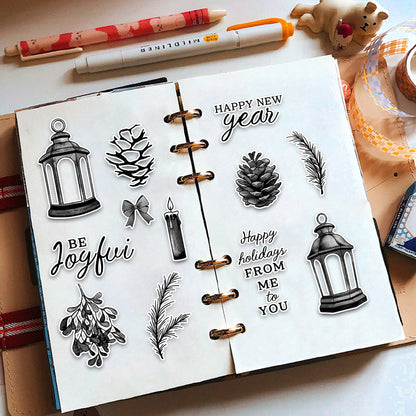 MILDLINER
HAPPY NEW
year
BE
Joyful
Happy
holidays
FROM
ME
to
YOU